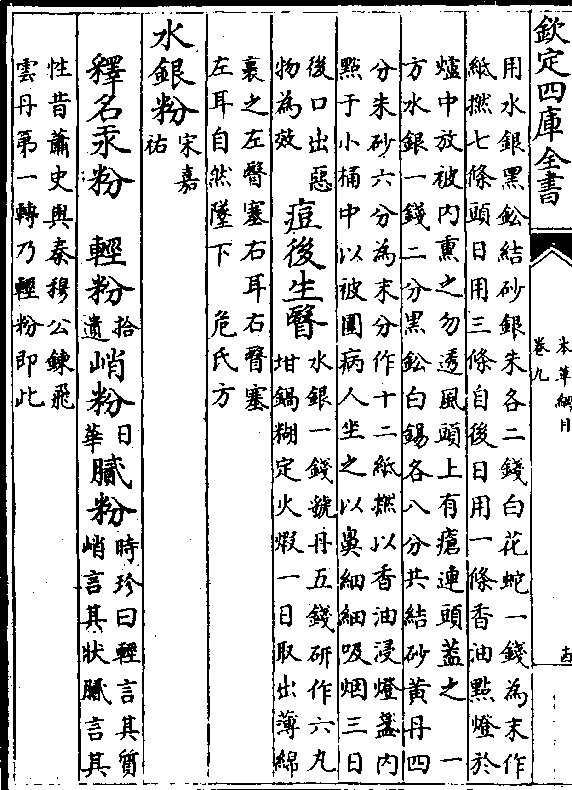 欽定四庫全書
本草綱目
卷九
用水銀黑鈆結砂銀朱各二錢白花蛇一錢為末作
紙撚七條頭日用三條自後日用一條香油點燈於
爐中放被內熏之勿透風頭上有瘡連頭蓋之 一
方水銀一錢二分黑鈆白錫各八分共結砂黃丹四
分朱砂六分為末分作十二紙撚以香油浸燈盞內
點于小桶中以被圍病人坐之以鼻細細吸烟三日
後口出惡
物為效
痘後生瞖
水銀一錢虢丹五錢研作六丸
坩鍋糊定火煅一日取出薄綿
裹之左瞖塞右耳右瞖塞
左耳自然墜下 危氏方
水銀粉 宋嘉祐
釋名汞粉 輕粉 拾遺 峭粉 日華 膩粉 時珍曰輕言其質
峭言其狀膩言其
性昔蕭史與秦穆公鍊飛
雲丹第一轉乃輕粉即此